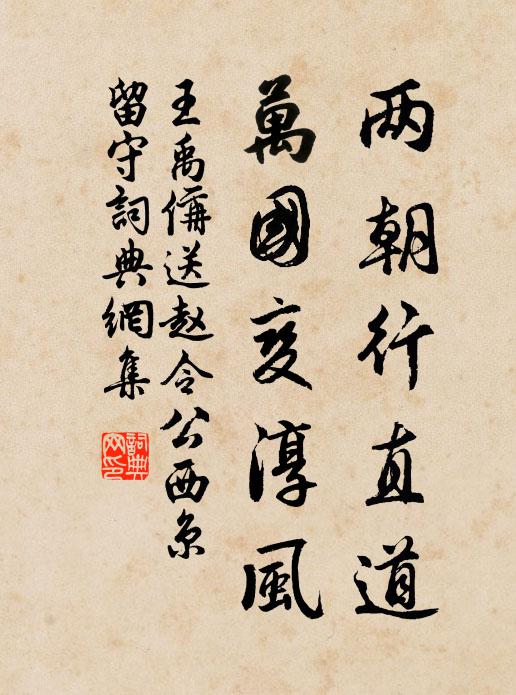 两朝行直道
萬國变淳風
王禹偁送赵令公西京
留守詞典網集
詞典
网印